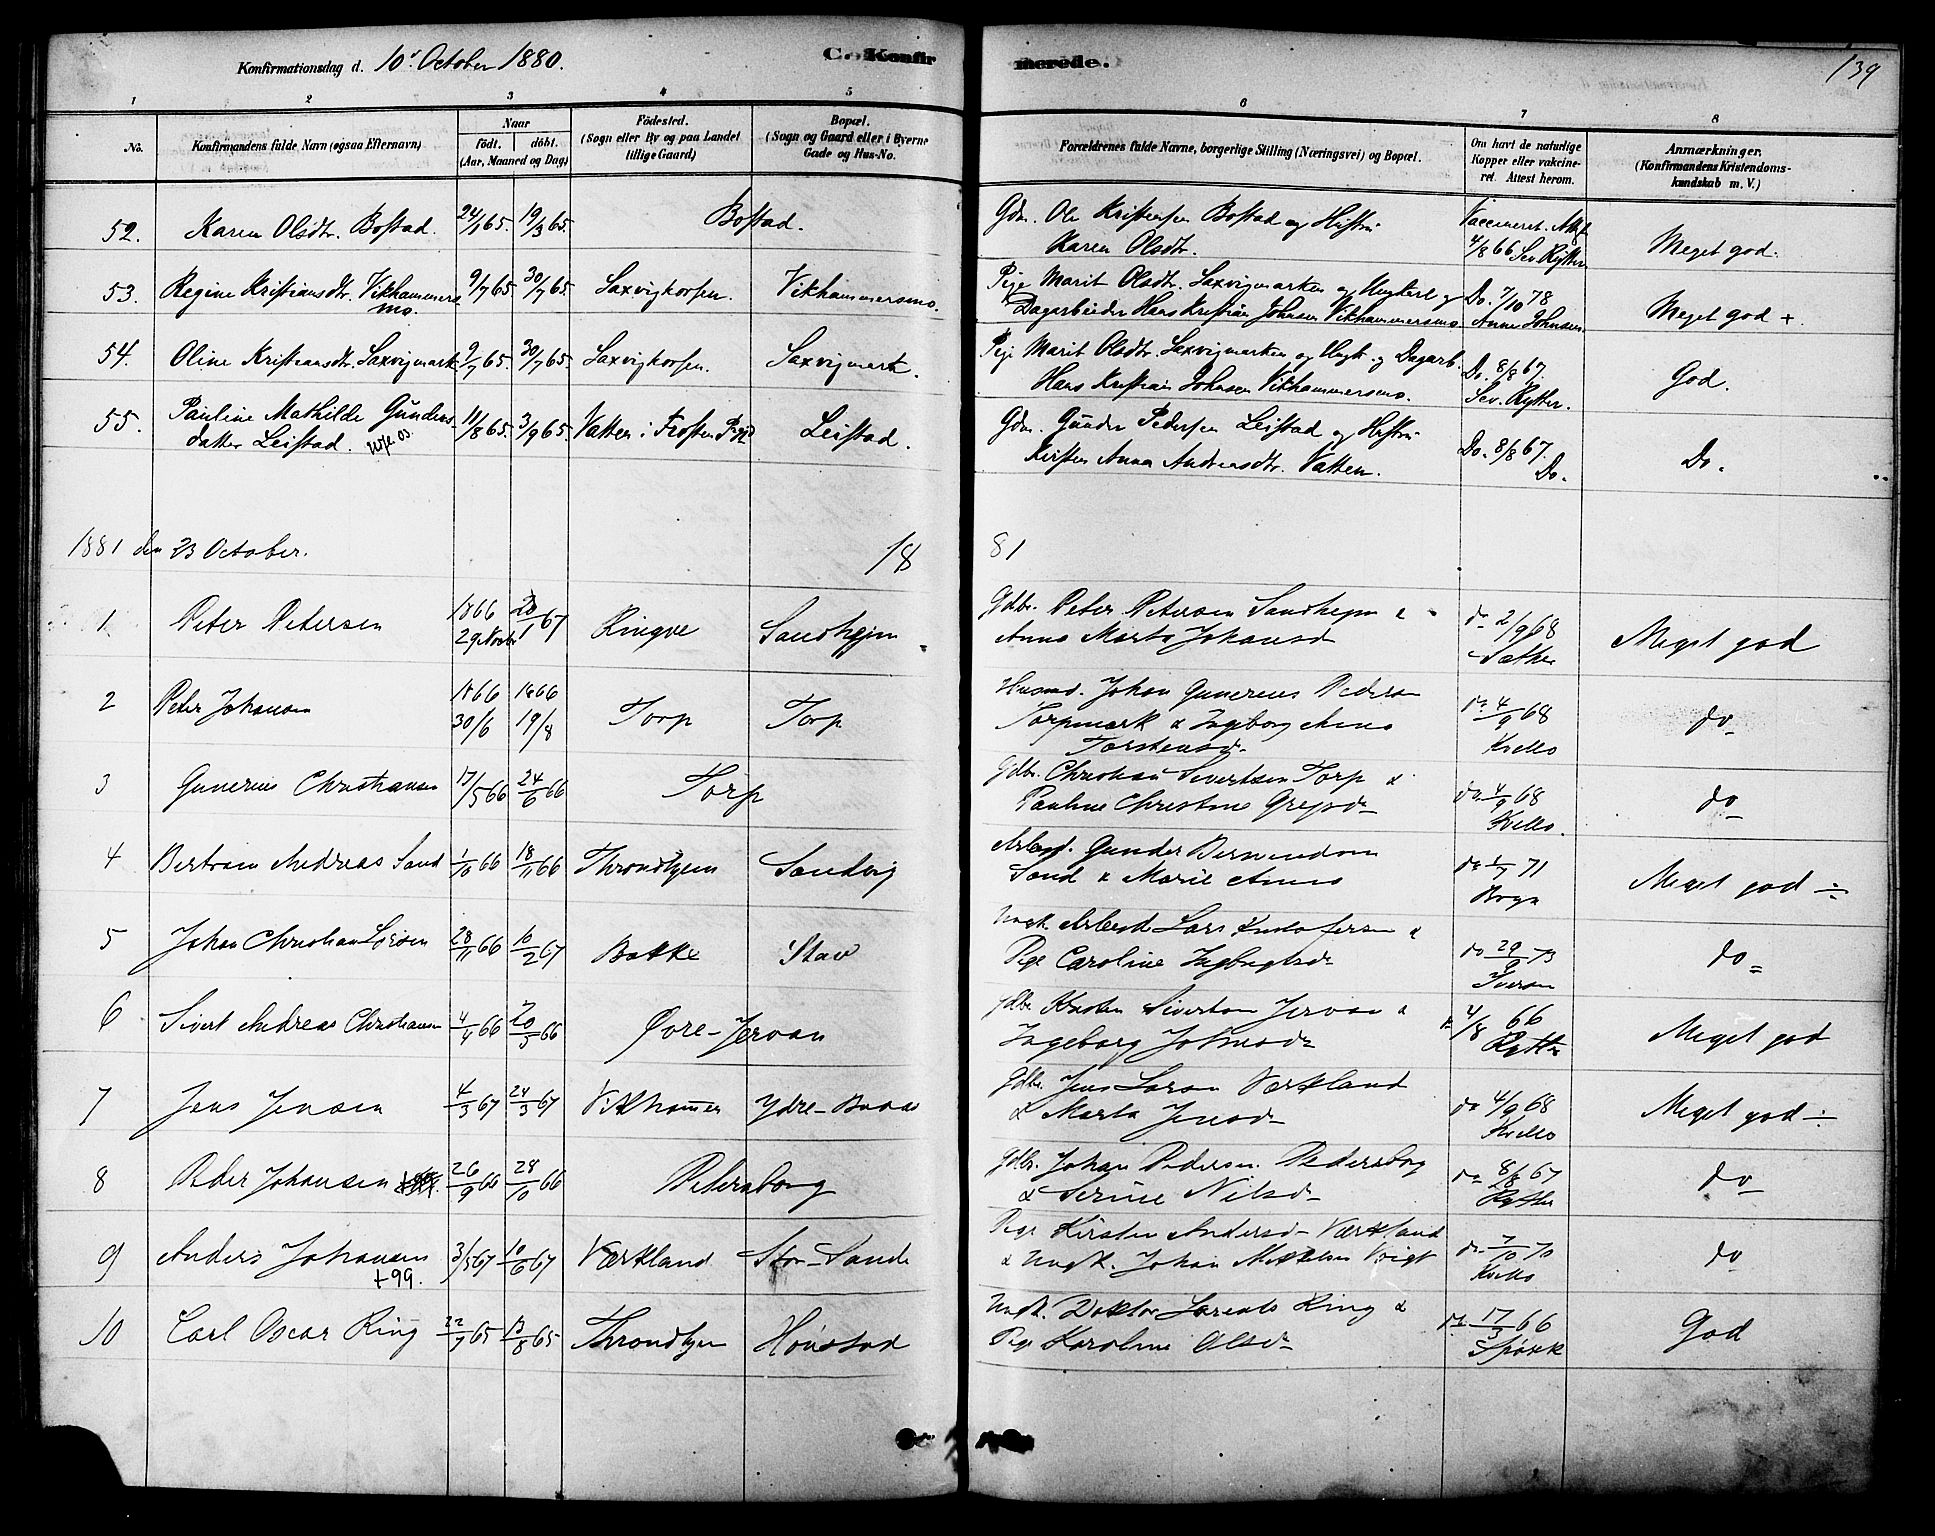 Konfirmationsdag d. 10' October 1880. C. Konfirmerede. 139
1 2 3 4 5 6 7 8
No. Konfirmandens fulde Navn (ogsaa Efternavn) Naar födt. döbt. (Aar, Maaned og Dag) Födested. (Sogn eller By og paa Landet tillige Gaard) Bopæl. (Sogn og Gaard eller i Byerne Gade og Hus-No. Forældrenes fulde Navne, borgerlige Stilling (Næringsvei) og Bopæl. Om havt de naturlige Kopper eller vakcineret. Attest herom. Anmærkninger. (Konfirmandens Kristendomskundskab m. V.)
52. Karen Olsdtr. Bostad. 24/1 65. 19/3 65. Bostad. Gdm. Ole Kristensen Bostad og Hustru Vaccineret. Att.
Karen Olsdtr. 4/8 66 Sev. Rytter Meget god.
53. Regine Kristiansdtr. Vikhammersmo. 9/7 65. 30/7 65. Saxvigkorsen. Vikhammersmo. Pige Marit Olsdtr. Saxvigmarken og Ungkarl og Do. 7/10 78
Dagarbeider Hans Kristian Johnsen Vikhammersmo. Anne Johnsen. Meget god +.
54. Oline Kristiansdtr. Saxvigmark. 9/7 65. 30/7 65. Saxvigkorsen. Saxvigmark. Pige Marit Olsdtr. Saxvigmarken og Ungk. og Dagarb. Do. 8/8 67.
Hans Kristian Johnsen Vikhammersmo. Sev. Rytter. God.
55. Pauline Mathilde Gunders- 11/8 65. 3/9 65. Vatten i Frosten Pgd Leistad. Gdm. Gunder Pedersen Leistad og Hustru Do. 8/8 67.
datter Leistad. Kirsten Anna Andreasdtr. Vatten. Do. Do.
1881 den 23 October. 18 81
1 Peter Petersen 1866 29 Novbr 20/1 67 Ringve Sandhejm Gdbr. Peter Petersen Sandhejm &
Anne Marta Johansd do 2/9 68 Sæther Meget god
2 Peter Johansen 1866 30/6 1866 19/8 Torp Torp Husmd. Johan Gunerius Pedersen
Torpmark & Ingeborg Anna
Torstensd- do 4/9 68 Kvello do-
3 Gunerius Christiansen 17/5 66 24/6 66 Torp Gdbr. Christian Sivertsen Torp &
Pauline Christine Gregsd- do 4/9 68 Kvello. do-
4 Bertram Andreas Sand 1/10 66 18/11 66 Throndhjem Sandvig Arbmd. Gunder
Sand & Marie Anna do 1/7 71 Meget god ÷
5 Johan Christian Larsen 28/11 66 10/2 67 Bakke Stav Ungk. Arbmd Lars Kristofersen &
Pige Caroline Ingbrigtsd- do 29/9 73 Iversen do=
6 Sivert Andreas Christiansen 4/4 66 20/5 66 Øvre-Jervan Gdbr. Kristen Sivertsen Jervan &
Ingeborg Johnsd- 4/8 66 Rytter Meget god
7 Jens Jensen 4/3 67 24/3 67 Vikhammer Ydre- Gdbr. Jens Larsen Værkland
& Marta Jensd- do 4/9 68 Kvello Meget god ÷
8 Peder Johansen 26/9 66 28/10 66 Petersborg Gdbr. Johan Pedersen Pedersborg
& Serine Nilsd- do 8/8 67 Rytter do-
9 Anders Johansen 3/5 67 10/6 67 Værkland Stor-Sande Pige Kirsten Andersd- Værkland
+99. & Ungk. Johan Mikkelsen Voigt do- 7/10 70 Kvello do
10 Carl Oscar Ring 22/7 65 13/8 65 Throndhjem Hønstad Ungk. Doktor Lorents Ring &
Pige Karoline Olsd- 17/3 66 Spørck God